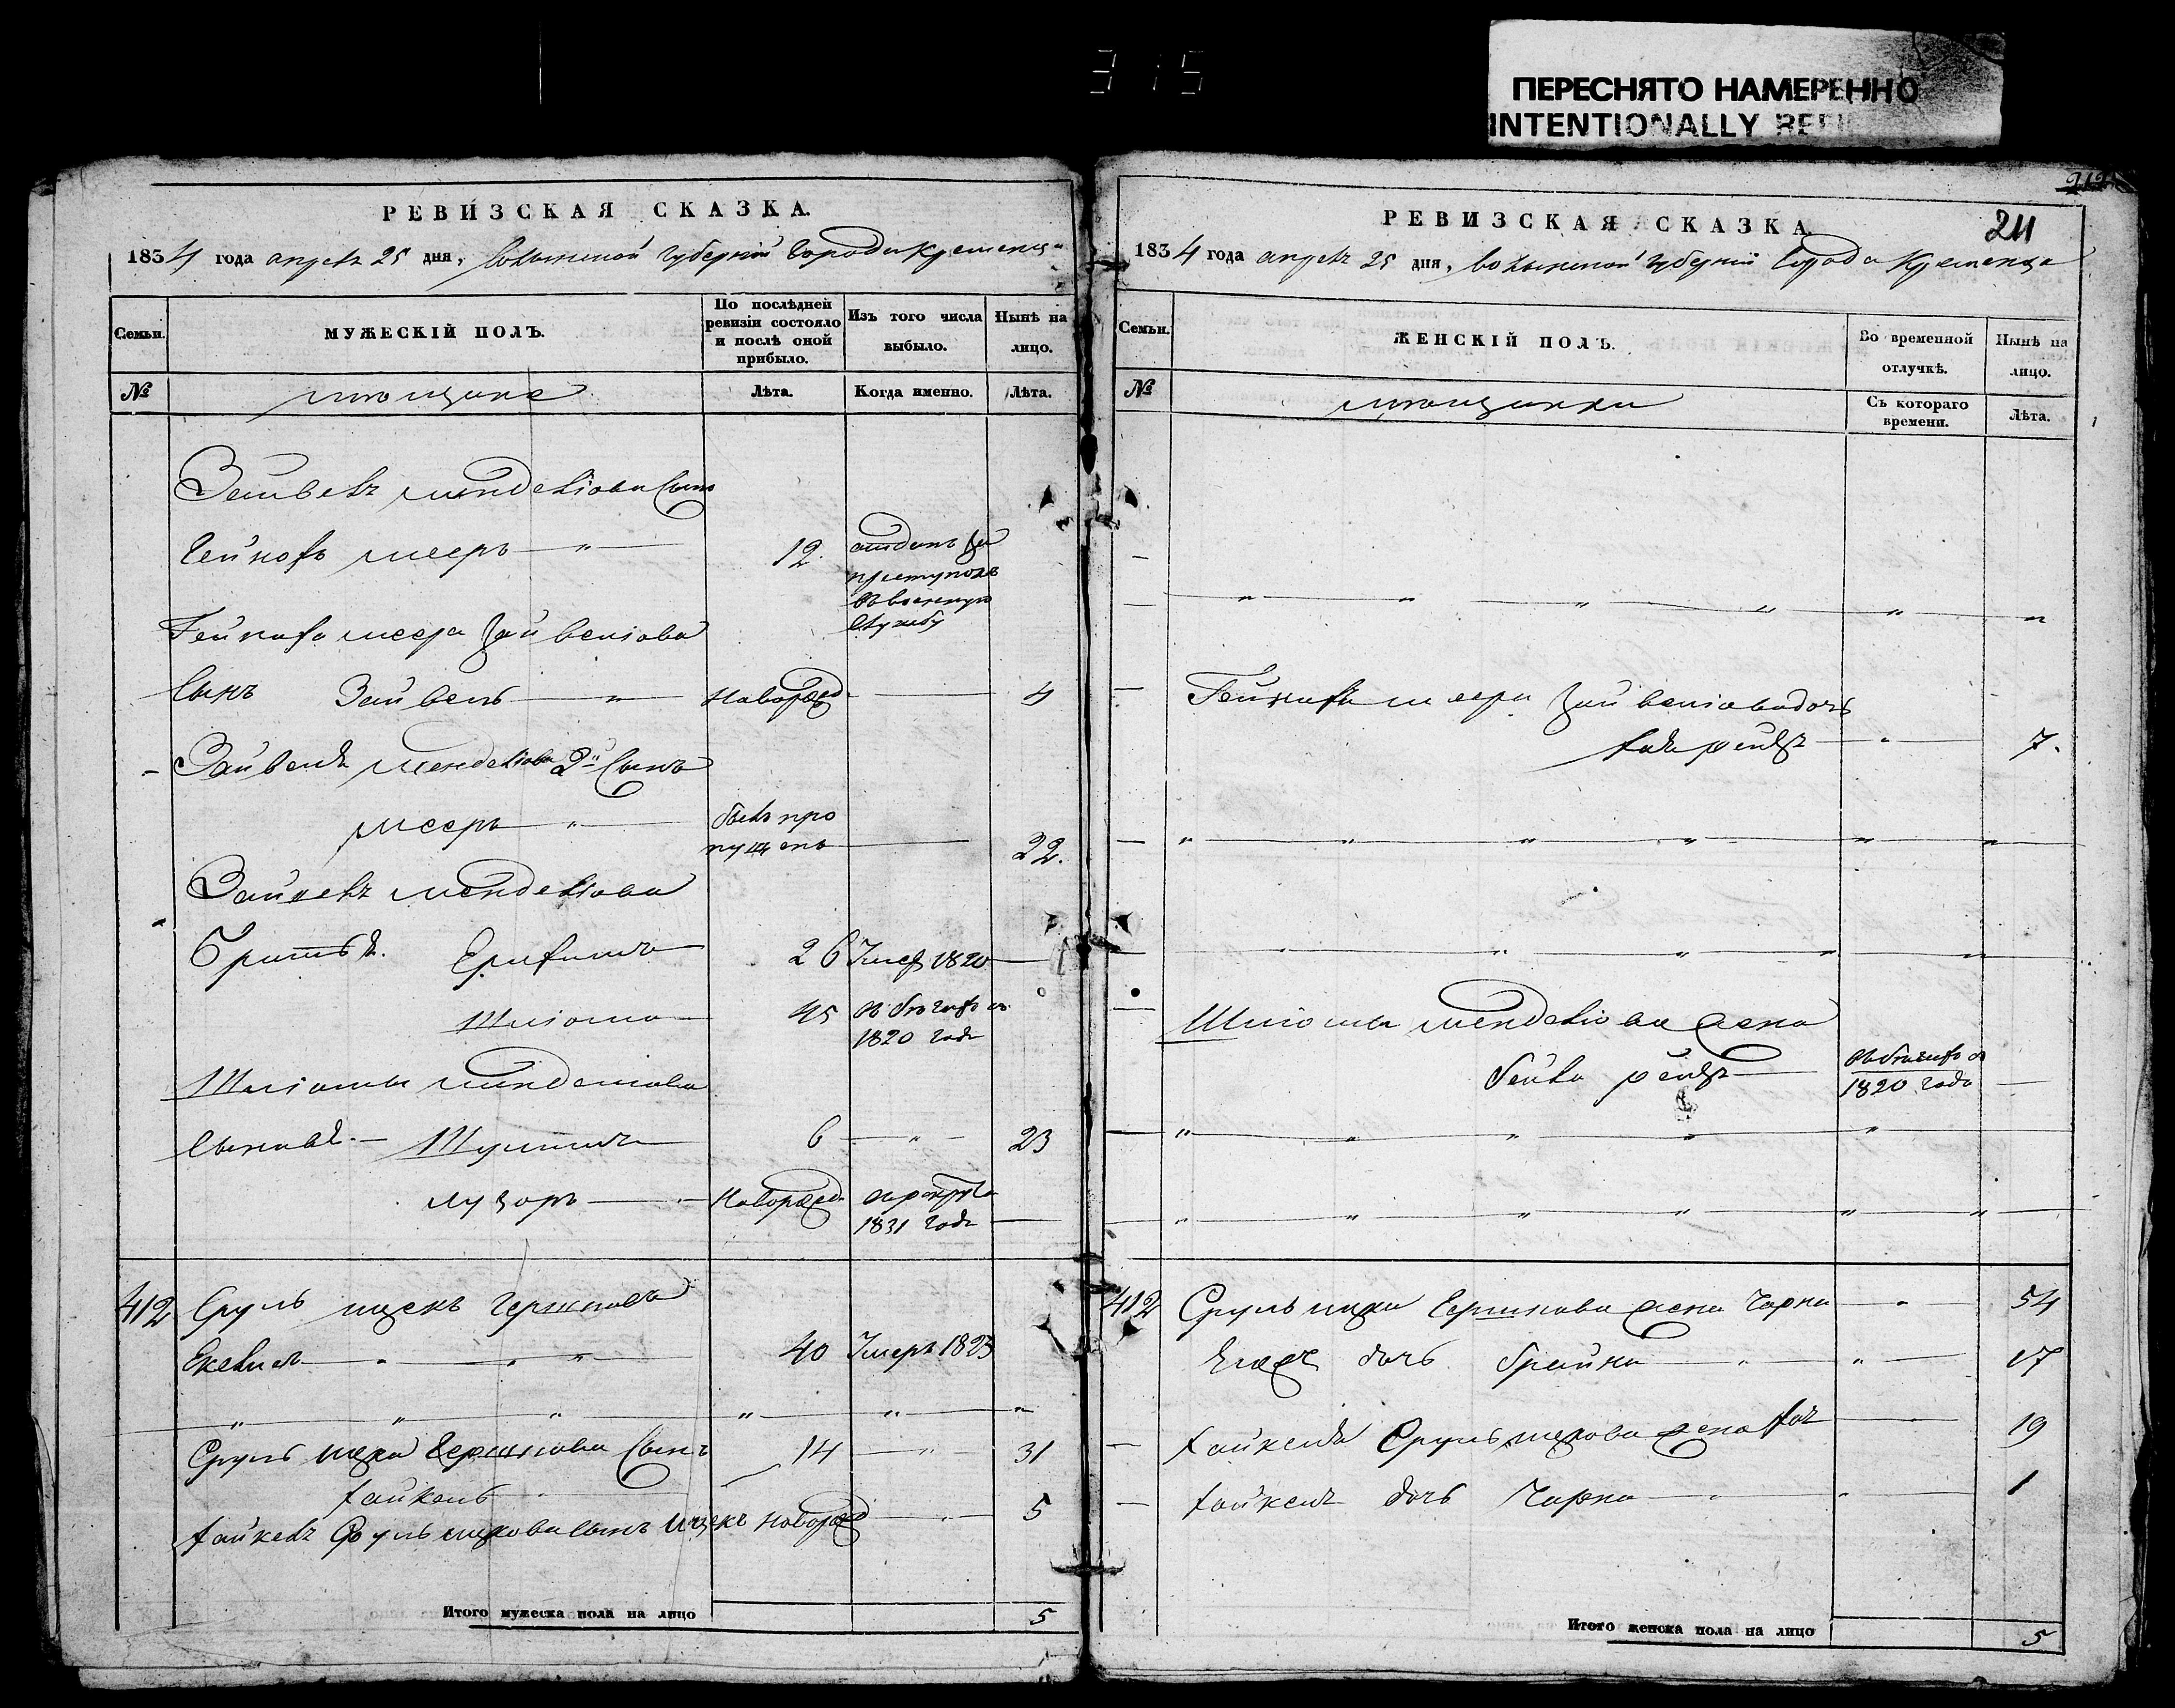 315
ПЕРЕСНЯТО НАМЕРЕННО
INTENTIONALLY REFI
РЕВИЗСКАЯ СКАЗКА.
1834 года апреля 25 дня, Волынской Губернии Города Кременца
Семьи.
МУЖЕСКІЙ ПОЛЪ.
По послѣдней ревизіи состояло и послѣ оной прибыло.
Изъ того числа выбыло.
Нынѣ на лицо.
№
мѣщане
Лѣта.
Когда именно.
Лѣта.
Зейвель Менделіова Сынъ
Гейнохъ Мееръ 12. отданъ за
преступокъ
въ военную
службу
Гейноха Меера Зайвеліова
Сынъ Зайвель Новорожд. 4
Зайвеля Менделіова 2й Сынъ
Мееръ былъ про
пущенъ 22.
Зайвеля Менделіова
Братья. 26 Умер 1820
Шліома 45 въ бѣгахъ съ
1820 года
Шліомы Менделіова
Сыновья. 6 23
Лузоръ Новорожд.
1831 года
412 Сруль Ицекъ Гершковъ
Ехевель 40 Умеръ 1823
Сруль Ицка Гершкова Сынъ 14 31
Хайкель
Хайкеля Сруль Ицкова Сынъ Ицекъ Новорожд 5
Итого мужеска пола на лицо 5
212
211
РЕВИЗСКАЯ СКАЗКА
1834 года апреля 25 дня, Волынской Губернии Города Кременца
Семьи.
ЖЕНСКІЙ ПОЛЪ.
Во временной отлучкѣ.
Нынѣ на лицо.
№
мѣщанки
Съ котораго времени.
Лѣта.
Гейноха Меера Зайвеліова дочь
Хая Рейзя 7.
Шліомы Менделіова жена
Бейла Рейзя въ бѣгахъ съ
1820 года
412 Сруль Ицка Гершкова жена Чарна 54
Его дочь Брайна 17
Хайкеля Сруль Ицкова жена 19
Хайкеля дочь Чарна 1
Итого женска пола на лицо 5